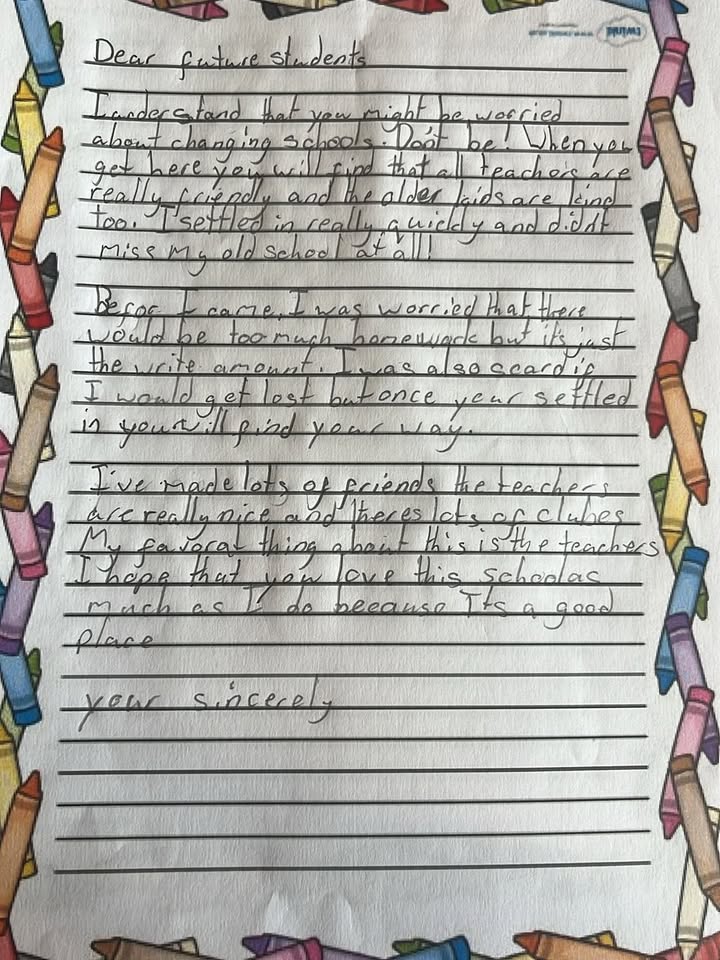 twinkl
Dear future students
I understand that you might be worried
about changing schools. Don't be! When you
get here you will find that all teachers are
really friendly and the older kids are kind
too. I settled in really quickly and didnt
miss my old school at all!
Befor I came, I was worried that there
would be too much homework but it's just
the write amount. I was also scard if
I would get lost but once your settled
in you will find your way.
I've made lots of friends the teachers
are really nice and theres lots of clubes
My favorat thing about this is the teachers
I hope that you love this school as
much as I do beeause It's a good
place
your sincerely